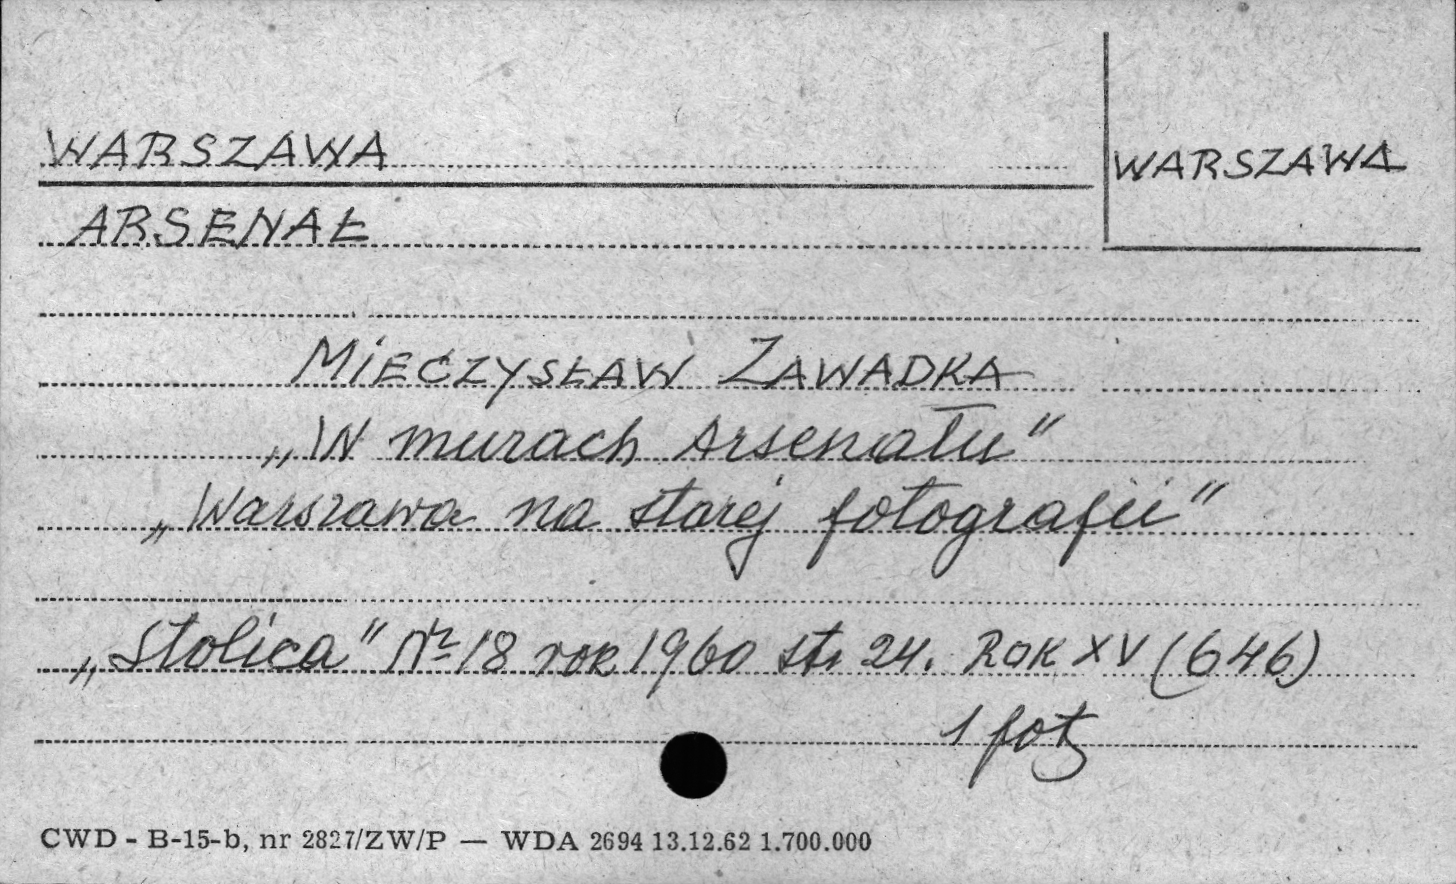 WARSZAWA
WARSZAWA
ARSENAŁ
MIECZYSŁAW ZAWADKA
„W murach Arsenału"
„Warszawa na starej fotografii"
„Stolica" Nr 18 rok 1960 str 24. ROK XV (646)
1 fot
CWD - B-15-b, nr 2827/ZW/P — WDA 2694 13.12.62 1.700.000